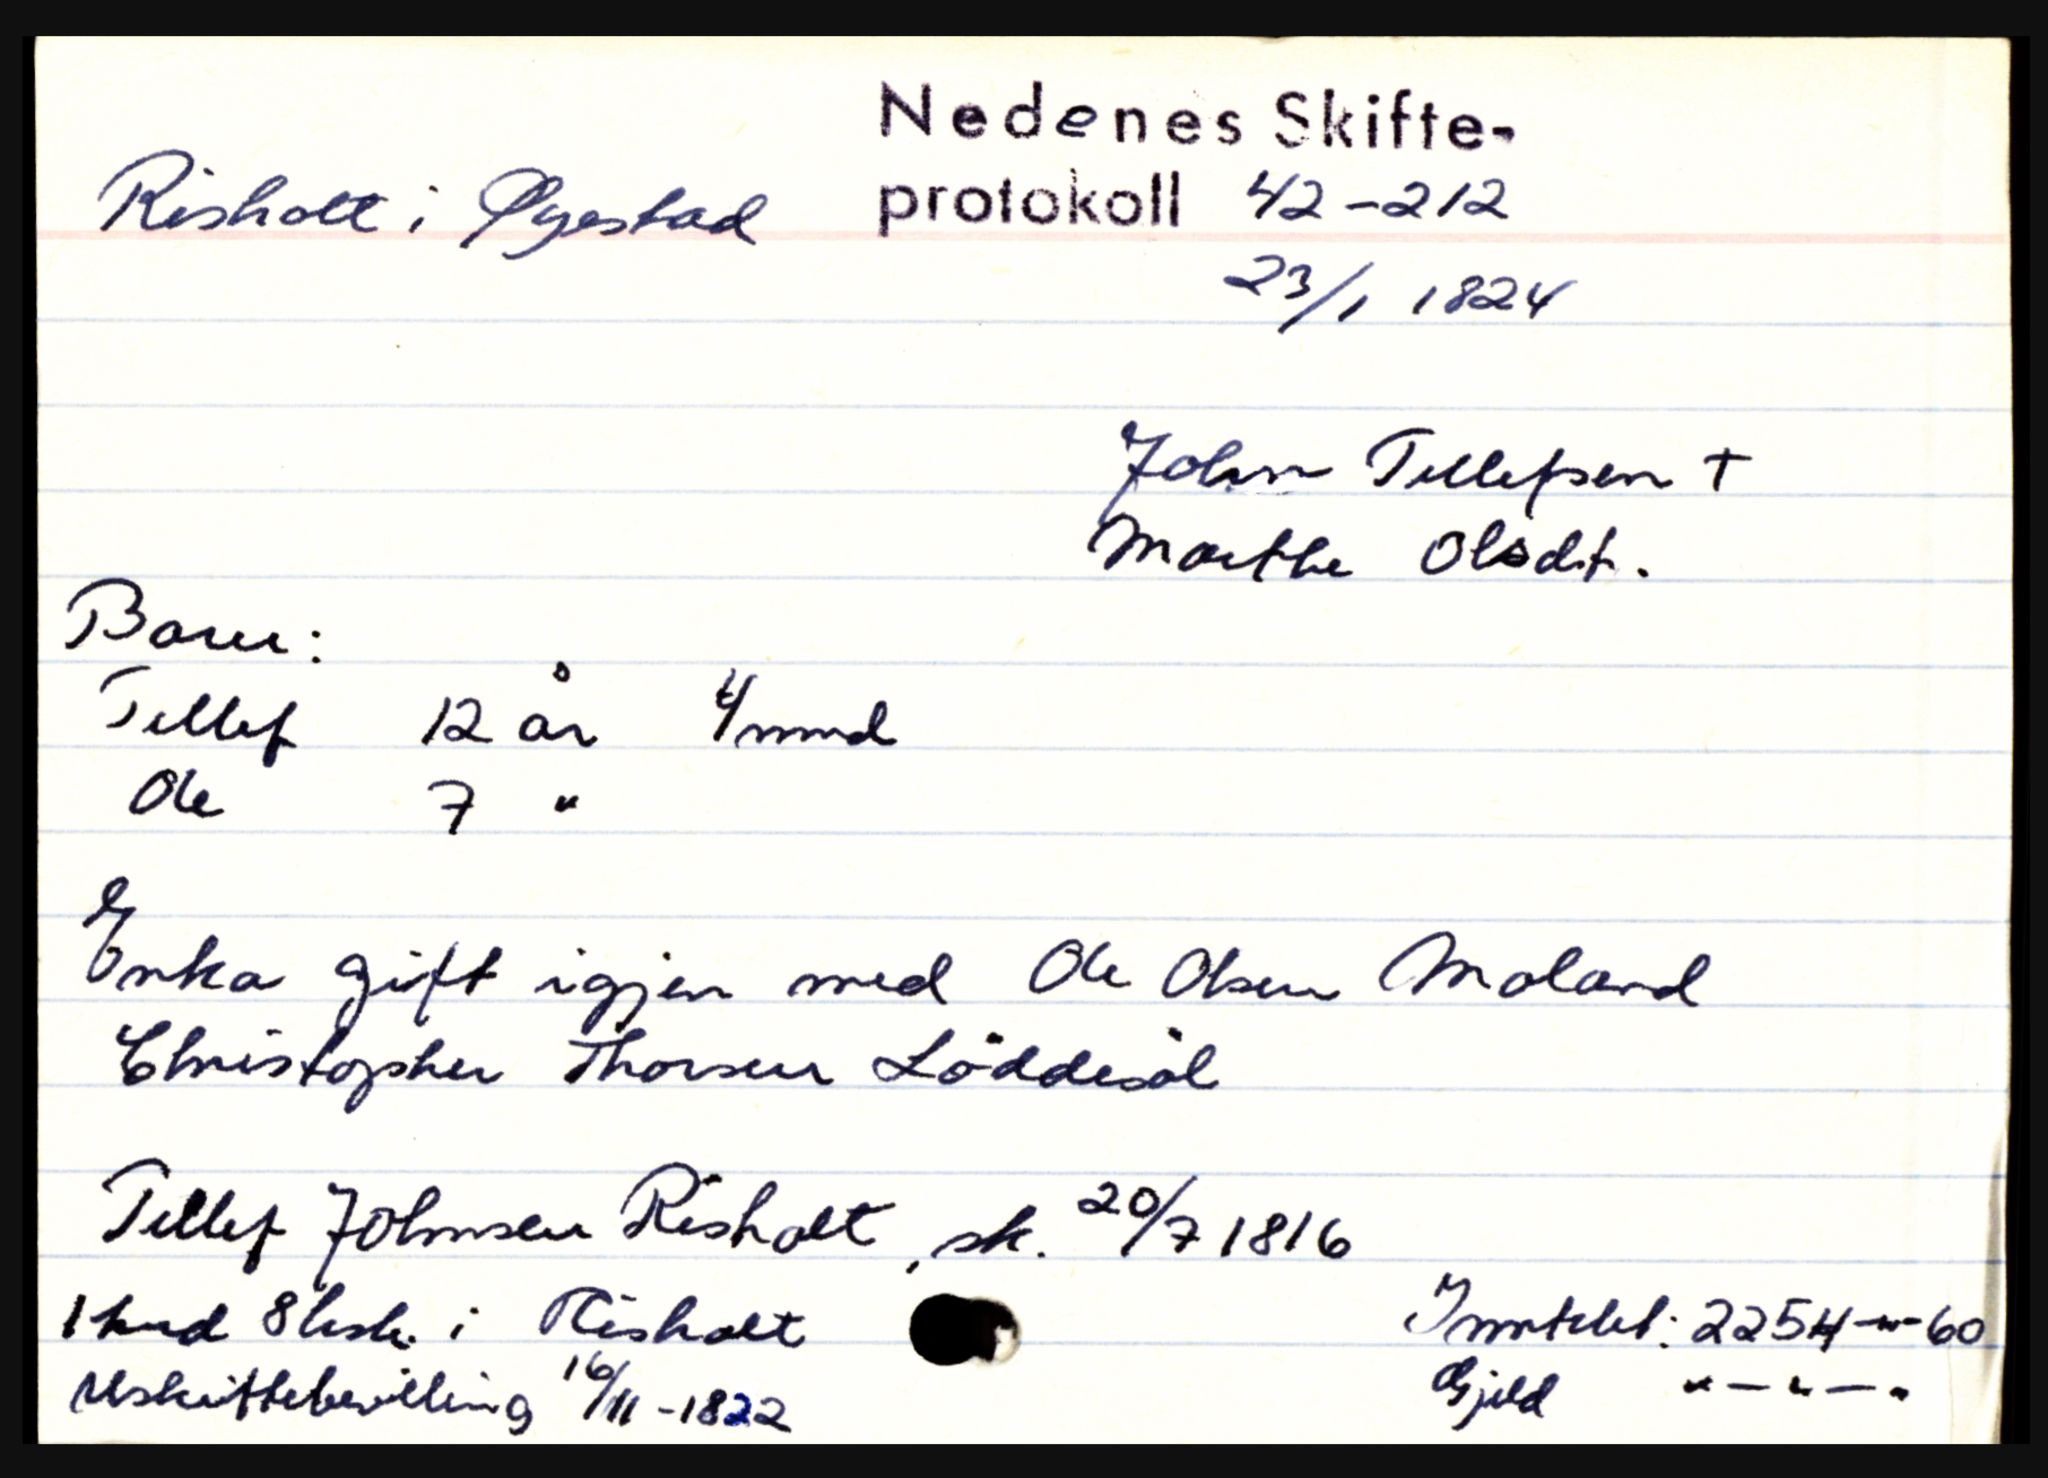 Nedenes Skifte-
Risholt i Øyestad protokoll 42-212
23/1 1824
John Tellefsen +
Marthe Olsdt.
Barn:
Tellef 12 år 4 mnd
Ole 7 "
Enka gift igjen med Ole Olsen Moland
Christopher Thorsen Löddesöl
Tellef Johnsen Risholt, sk. 20/7 1816
1 hud 8 ksk. i Risholt
Inntekt: 2254-"-60
Uskiftebevilling 16/11-1822
Gjeld "-"-"